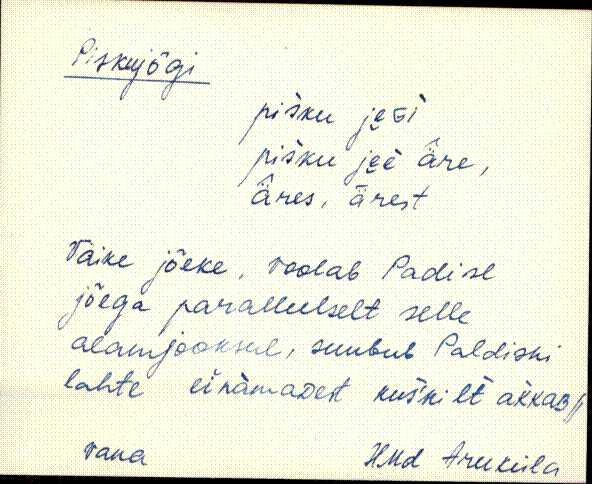 Piskujõgi
pìšku je̮Gì
pìšku je̮è äre,
äres, ärest
Väike jõeke, voolab Padise
jõega paralleelselt selle
alamjooksul, suubub Paldiski
lahte einämaDest kušкilt akkaB//
vana HMd Aruküla